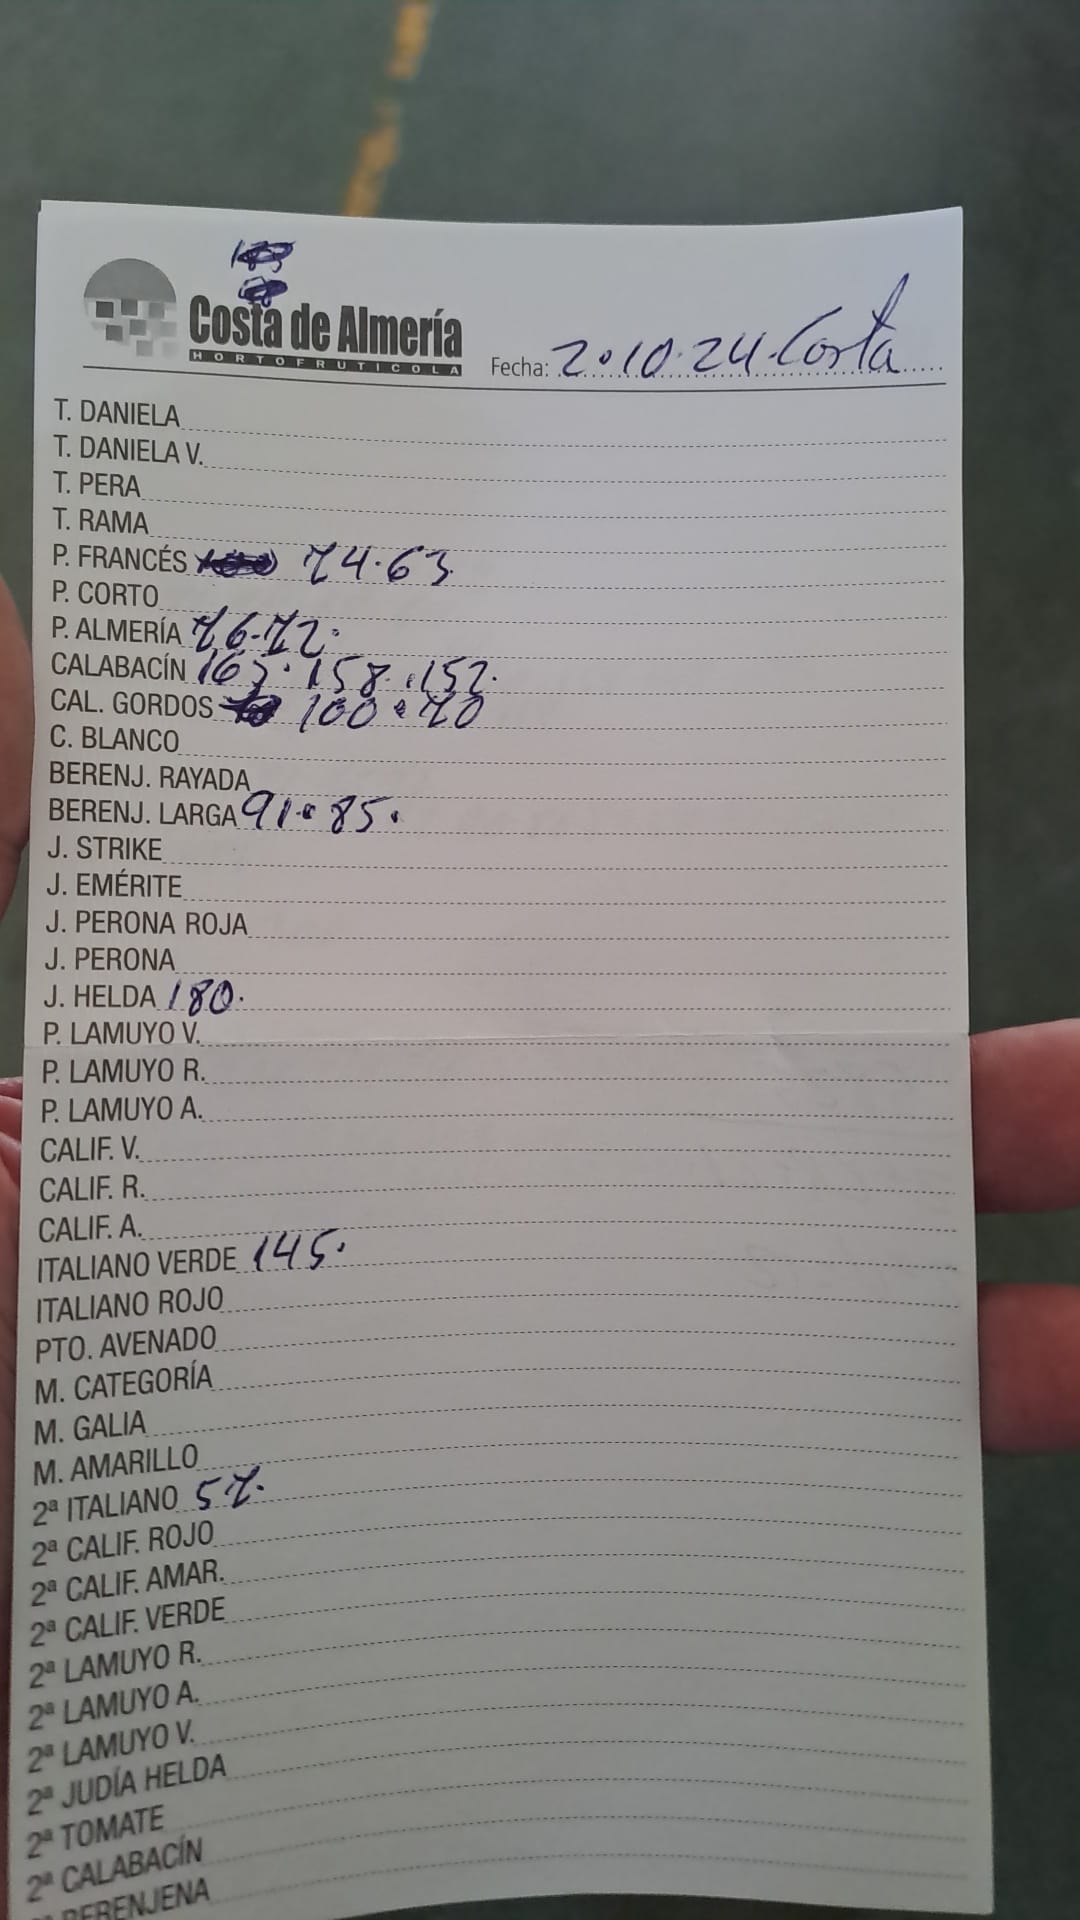 Costa de Almería
HORTOFRUTICOLA
Fecha: 2.10.24. Costa
T. DANIELA
T. DANIELA V.
T. PERA
T. RAMA
P. FRANCÉS 74.63
P. CORTO
P. ALMERÍA 76-72.
CALABACÍN 163. 158. 152.
CAL. GORDOS 100.70
C. BLANCO
BERENJ. RAYADA
BERENJ. LARGA 91.85.
J. STRIKE
J. EMÉRITE
J. PERONA ROJA
J. PERONA
J. HELDA 180.
P. LAMUYO V.
P. LAMUYO R.
P. LAMUYO A.
CALIF. V.
CALIF. R.
CALIF. A.
ITALIANO VERDE 145.
ITALIANO ROJO
PTO. AVENADO
M. CATEGORÍA
M. GALIA
M. AMARILLO
2ª ITALIANO 57.
2ª CALIF. ROJO
2ª CALIF. AMAR.
2ª CALIF. VERDE
2ª LAMUYO R.
2ª LAMUYO A.
2ª LAMUYO V.
2ª JUDÍA HELDA
2ª TOMATE
2ª CALABACÍN
BERENJENA